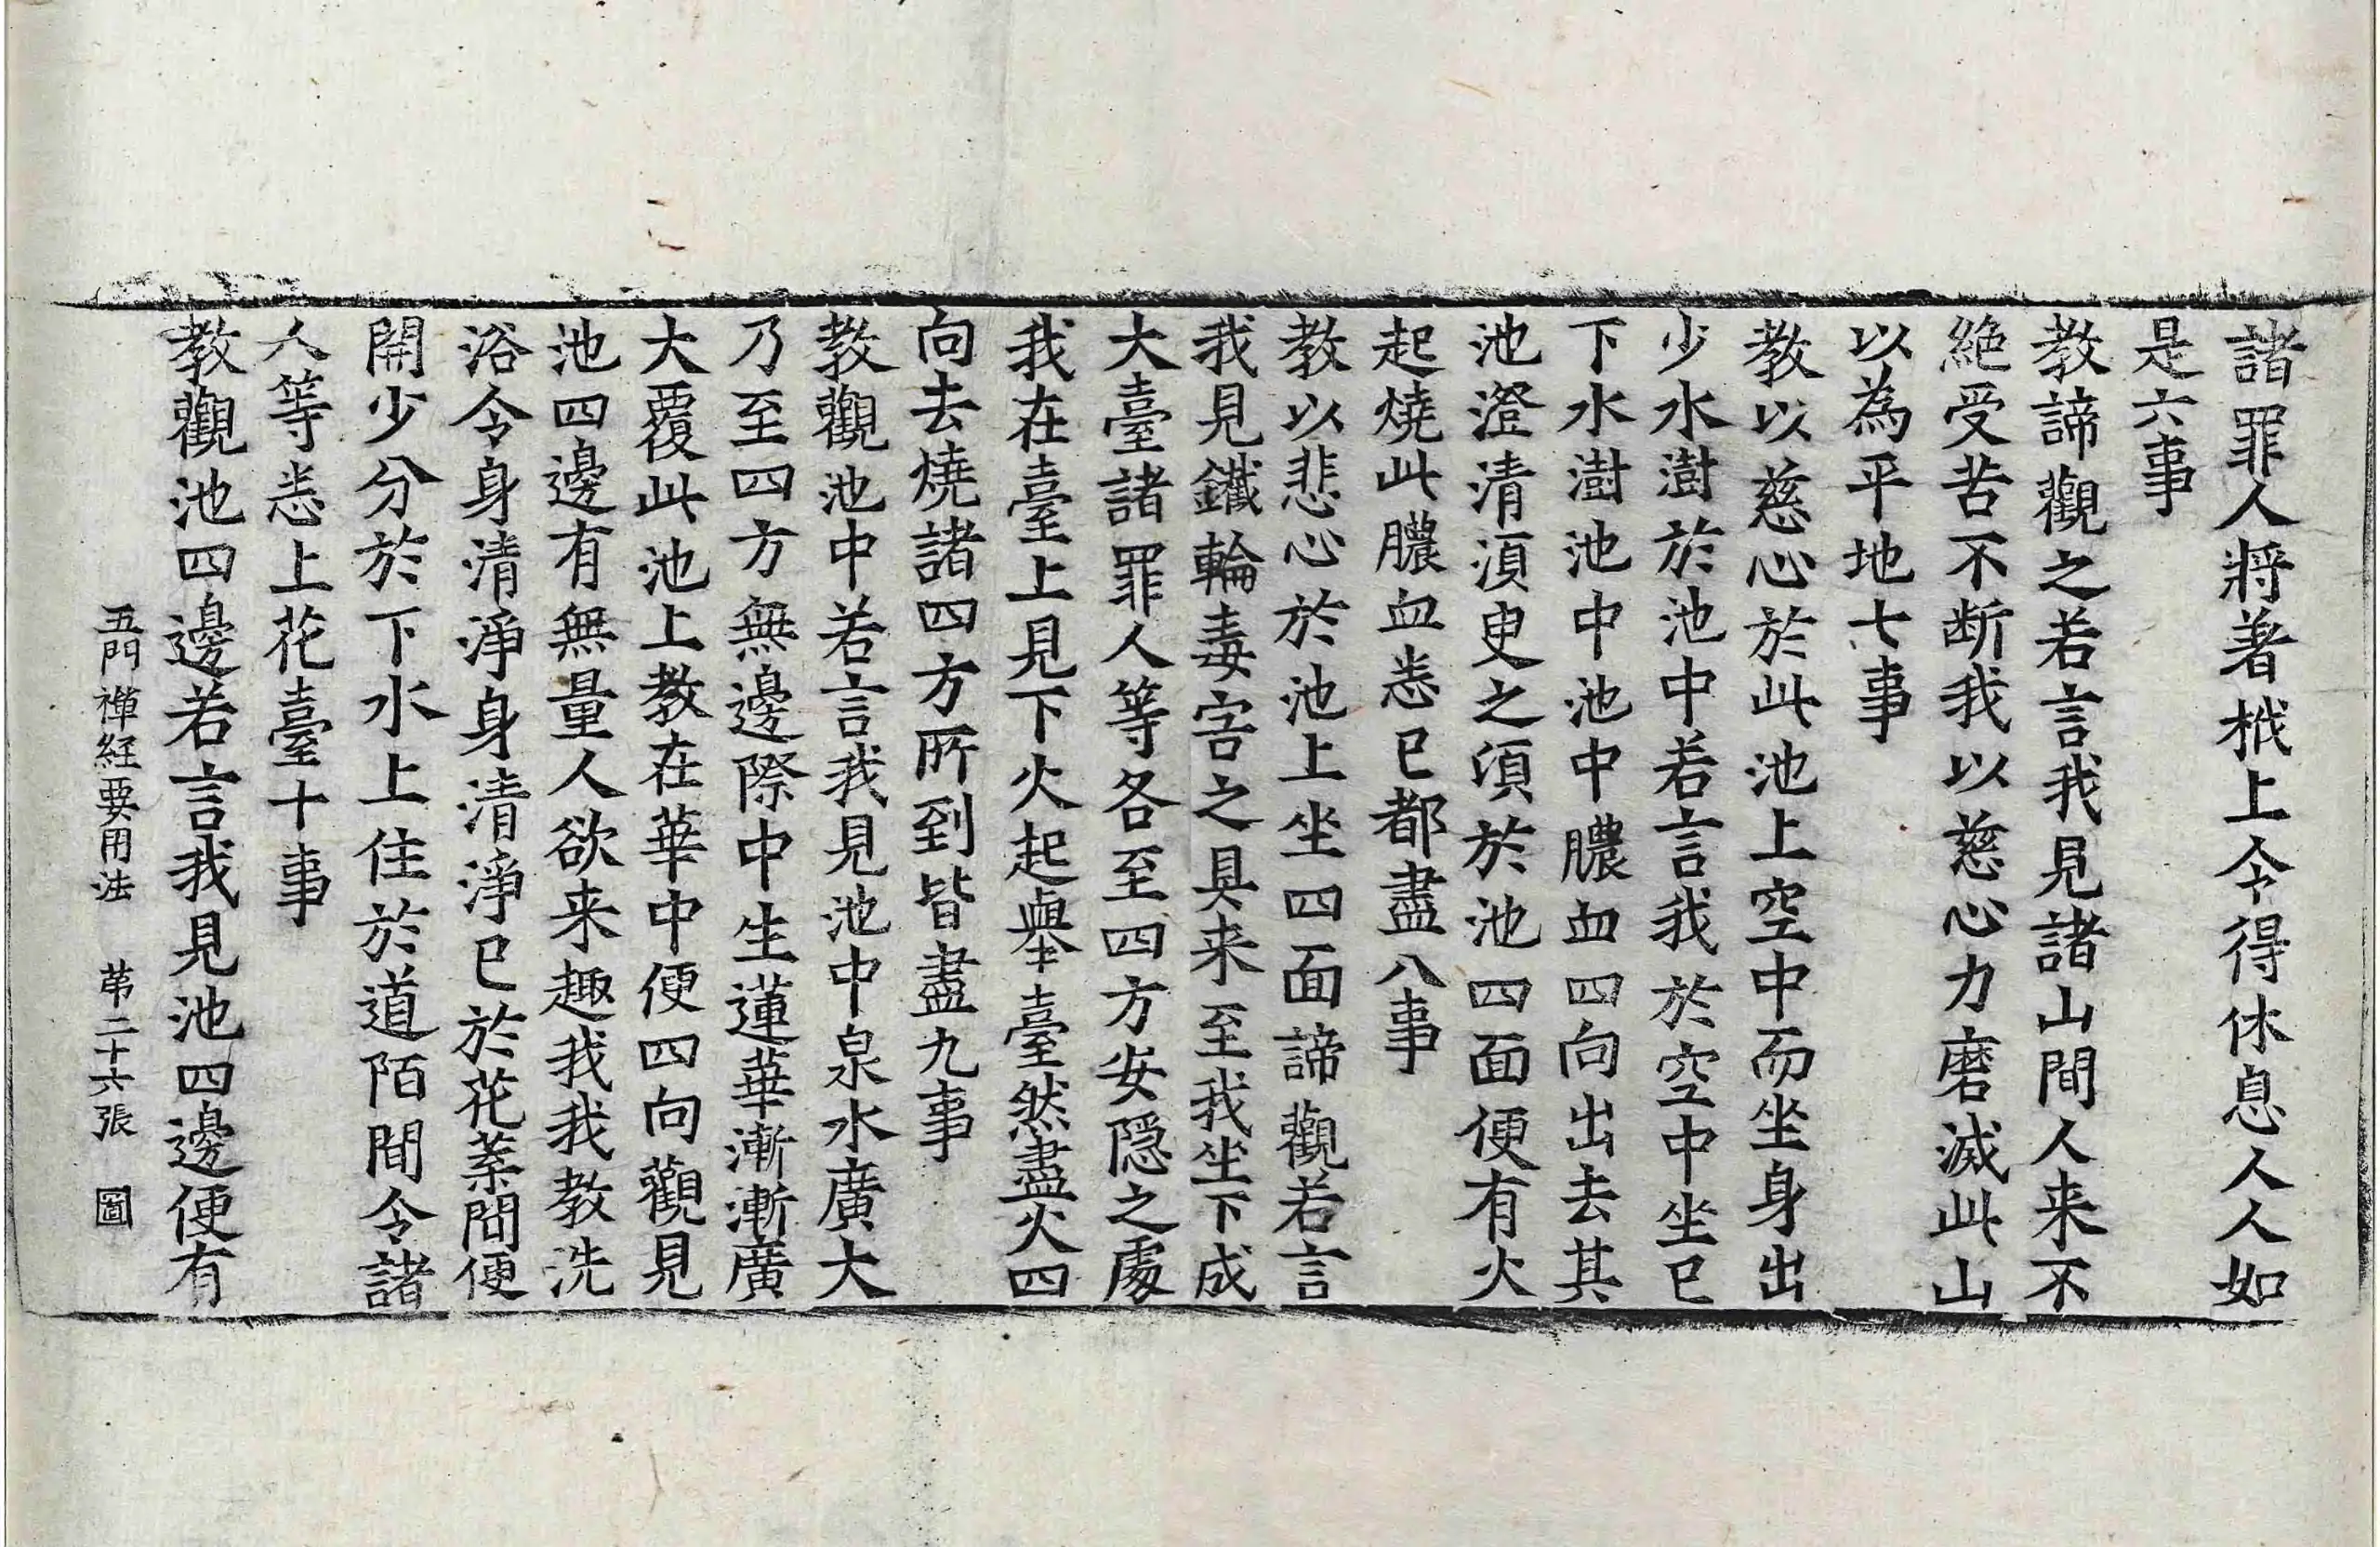 諸罪人將著栰上令得休息人人如
是六事
教諦觀之若言我見諸山間人来不
絶受苦不断我以慈心力磨滅此山
以為平地七事
教以慈心於此池上空中而坐身出
少水澍於池中若言我於空中坐已
下水澍池中池中膿血四向出去其
池澄清須臾之須於池四面便有火
起燒此膿血悉已都盡八事
教以悲心於池上坐四面諦觀若言
我見鐵輪毒害之具来至我坐下成
大臺諸罪人等各至四方安隠之處
我在臺上見下火起轝臺然盡火四
向去燒諸四方所到皆盡九事
教觀池中若言我見池中泉水廣大
乃至四方無邊際中生蓮華漸漸廣
大覆此池上教在華中便四向觀見
池四邊有無量人欲来趣我我教洗
浴令身清淨身清淨已於花葉間便
開少分於下水上住於道陌間令諸
人等悉上花臺十事
教觀池四邊若言我見池四邊便有
五門禪経要用法 苐二十六張 圖